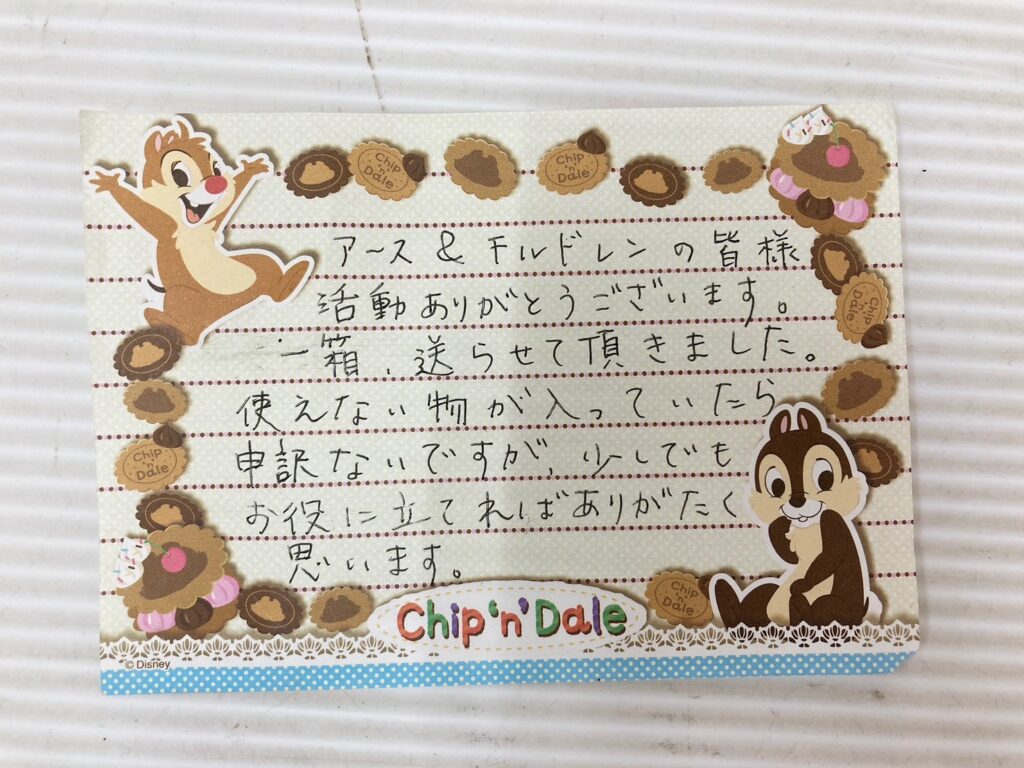 Chip 'n' Dale
Chip 'n' Dale
アース&チルドレンの皆様
活動ありがとうございます。
Chip 'n' Dale
一箱、送らせて頂きました。
使えない物が入っていたら
申訳ないですが、少しでも
Chip 'n' Dale
お役に立てればありがたく
思います。
Chip 'n' Dale
Chip 'n' Dale
© Disney